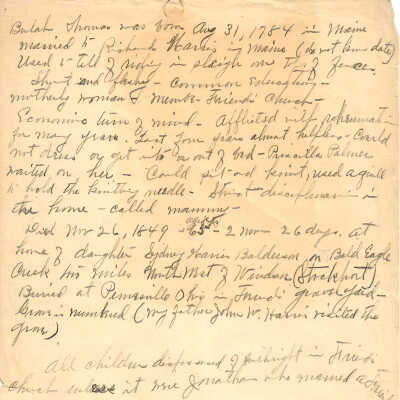 Bulah Thomas was born Aug 31, 1784 in Maine
married to Richard Harris in Maine (do not know date)
Used to tell of riding in sleigh over top of fence.
Short and fleshy - common Education -
motherly woman & member Friends Church -
Economic turn of mind - Afflicted with rheumatism
for many years. Last four years almost helpless - Could
not dress or get into or out of bed - Priscilla Palmer
waited on her, - Could sit and knit, used a quill
to hold the knitting needle - Strict disciplinarian in
the home - called mammy -
Died Nov 26, 1849 - aged 65 - 2 mon 26 days. At
home of daughter Sydney Harris Balderson, on Bald Eagle
Creek two miles North West of Windsor (Stockport)
Buried at Pennsville Ohio in Friends graveyard -
Grave is numbered (my father John W. Harris visited the
grave)
All children dispossessed of birthright in Friends
church unless it were Jonathan who married a Friend